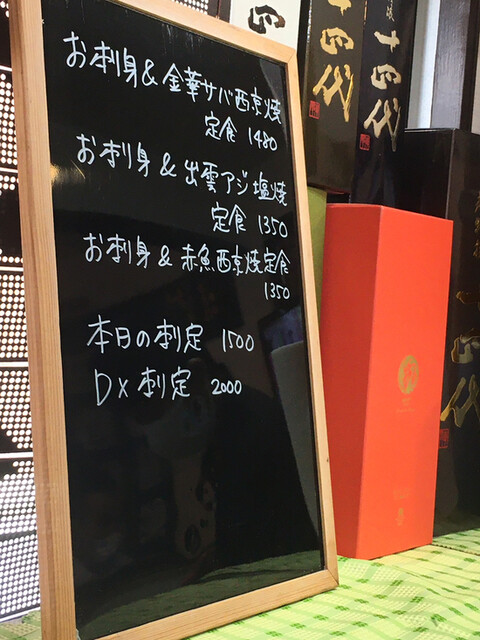 お刺身&金華サバ西京焼
定食 1480
お刺身&出雲アジ塩焼
定食 1350
お刺身&赤魚西京焼定食
1350
本日の刺定 1500
DX刺定 2000
十四代
十四代